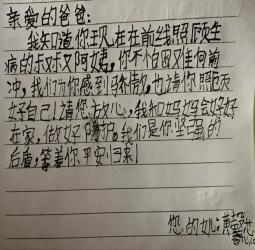 亲爱的爸爸:
我知道你现在在前线照顾生
病的叔叔阿姨,你不怕困难向前
冲,我们为你感到骄傲,也请你照顾
好自己!请您放心,我和妈妈会好好
在家,做好防护。我们是你坚强的
后盾,等着你平安归来!
您的女儿:黄